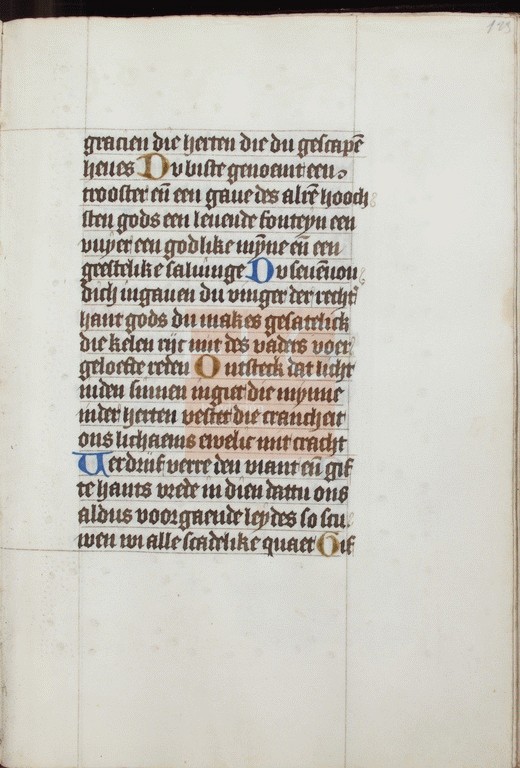 123
gracien die herten die du gescapē
heues Du biste genoemt een
trooster eñ een gaue des alrē hooch
sten gods een leuende fonteyn een
vuyer een godlike mȳne eñ een
geestelike saluinge Du seuēuou
dich ingauen du vinger der recht
hant gods du makes gesatelick
die kelen mit des vaders voer
geloefte reden Ontsteck dat licht
inden sinnen ingiet die mynne
inder herten vestet die crancheit
ons lichaems ewelic mit cracht
Uerdrijf verre den viant eñ gif
te hants vrede in dien dattu ons
aldus voorgaende leydes so scu
wen wi alle scadelike quaet Gif